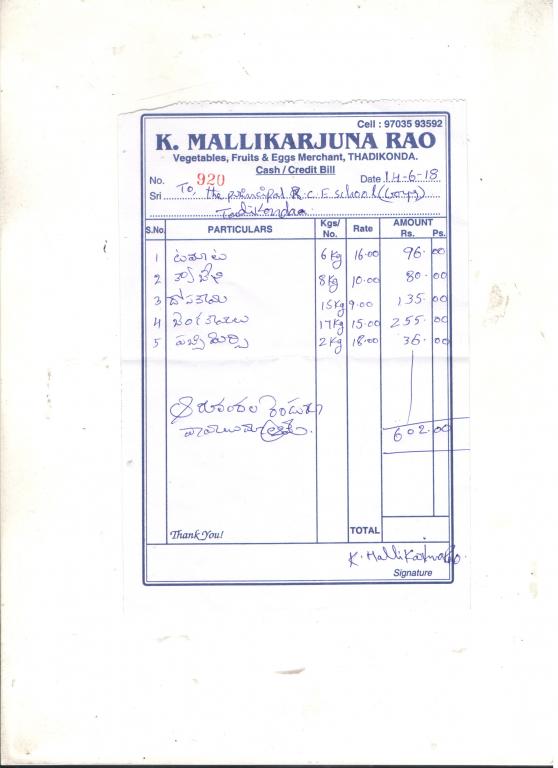 Cell : 97035 93592
K. MALLIKARJUNA RAO
Vegetables, Fruits & Eggs Merchant, THADIKONDA.
Cash / Credit Bill
No. 920 Date 14-6-18
Sri To, the principal R.C.E school
Tadikonda
S.No. PARTICULARS Kgs/No. Rate AMOUNT Rs. Ps.
1 టమాట 6 Kg 16.00 96.00
2 క్యాబేజి 8Kg 10.00 80.00
3 దోసకాయ 15Kg 9.00 135.00
4 వంకాయలు 17Kg 15.00 255.00
5 పచ్చిమిర్చి 2Kg 18.00 36.00
ఆరువందల రెండు
602.00
Thank You! TOTAL
K. Mallikarjuna Rao
Signature